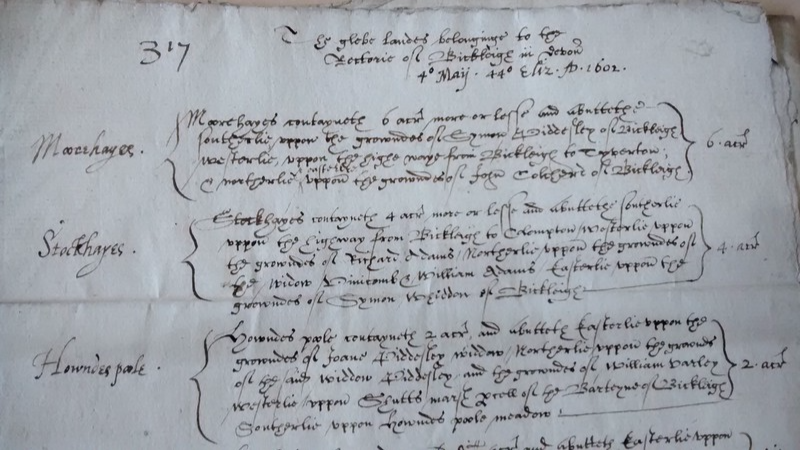 317
The glebe landes belonginge to the
Rectorie of Bickleigh in devon
4º Maij. 44º Eliz. A. 1602.
Moorehayes.
Moorehayes contayneth 6 acr more or lesse and abuttethe
southerlie vppon the growndes of Symon of Bickleigh
westerlie, vppon the highe waye from Bickleigh to Tyverton,
& northerlie vppon the growndes of John of Bickleigh.
6. acr
Stockhayes.
Stockhayes contayneth 4 acr more or lesse and abuttethe southerlie
vppon the highway from Bickleigh to Colompton, westerlie vppon
the growndes of Richard Adams, Northerlie vppon the growndes of
the widow & William Adams Easterlie vppon the
growndes of Symon Whiddon of Bickleigh
4. acr
Howndes poole.
Howndes poole contayneth 2 acr, and abutteth Easterlie vppon the
growndes of Joane widdow, Northerlie vppon the grownds
of the said widdow and the growndes of William Varley
westerlie vppon Shutts marsh pcell of the Barteyne of Bickleigh
Southerlie vppon Howndes poole meadow
2. acr
and abutteth Easterlie vppon